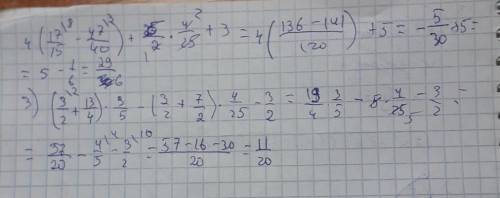 4(17/15\8 - 47\3/40) + 25/2 · 4/25 + 3 = 4((136 - 141)/120) + 5 = -5/30 + 5 =
= 5 - 1/6 = 29/6
3) (3/2\2 + 13/4) · 3/5 - (3/2 + 7/2) · 4/25 - 3/2 = 19/4 · 3/5 - 8 · 4/25 - 3/2 =
= 57/20 - 4/5\4 - 3/2\10 = (57-16-30)/20 = 11/20